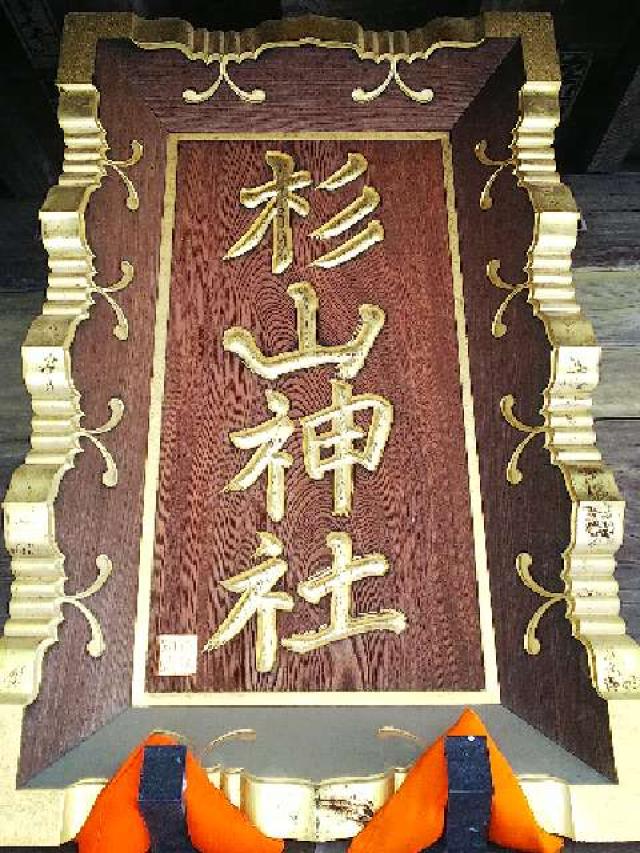 杉山神社